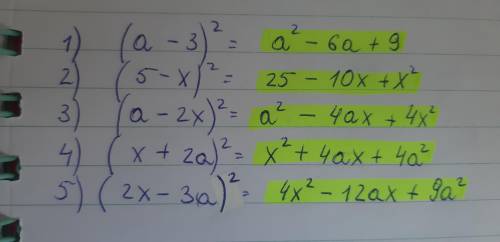 1) (a - 3)² = a² - 6a + 9
2) (5 - x)² = 25 - 10x + x²
3) (a - 2x)² = a² - 4ax + 4x²
4) (x + 2a)² = x² + 4ax + 4a²
5) (2x - 3a)² = 4x² - 12ax + 9a²